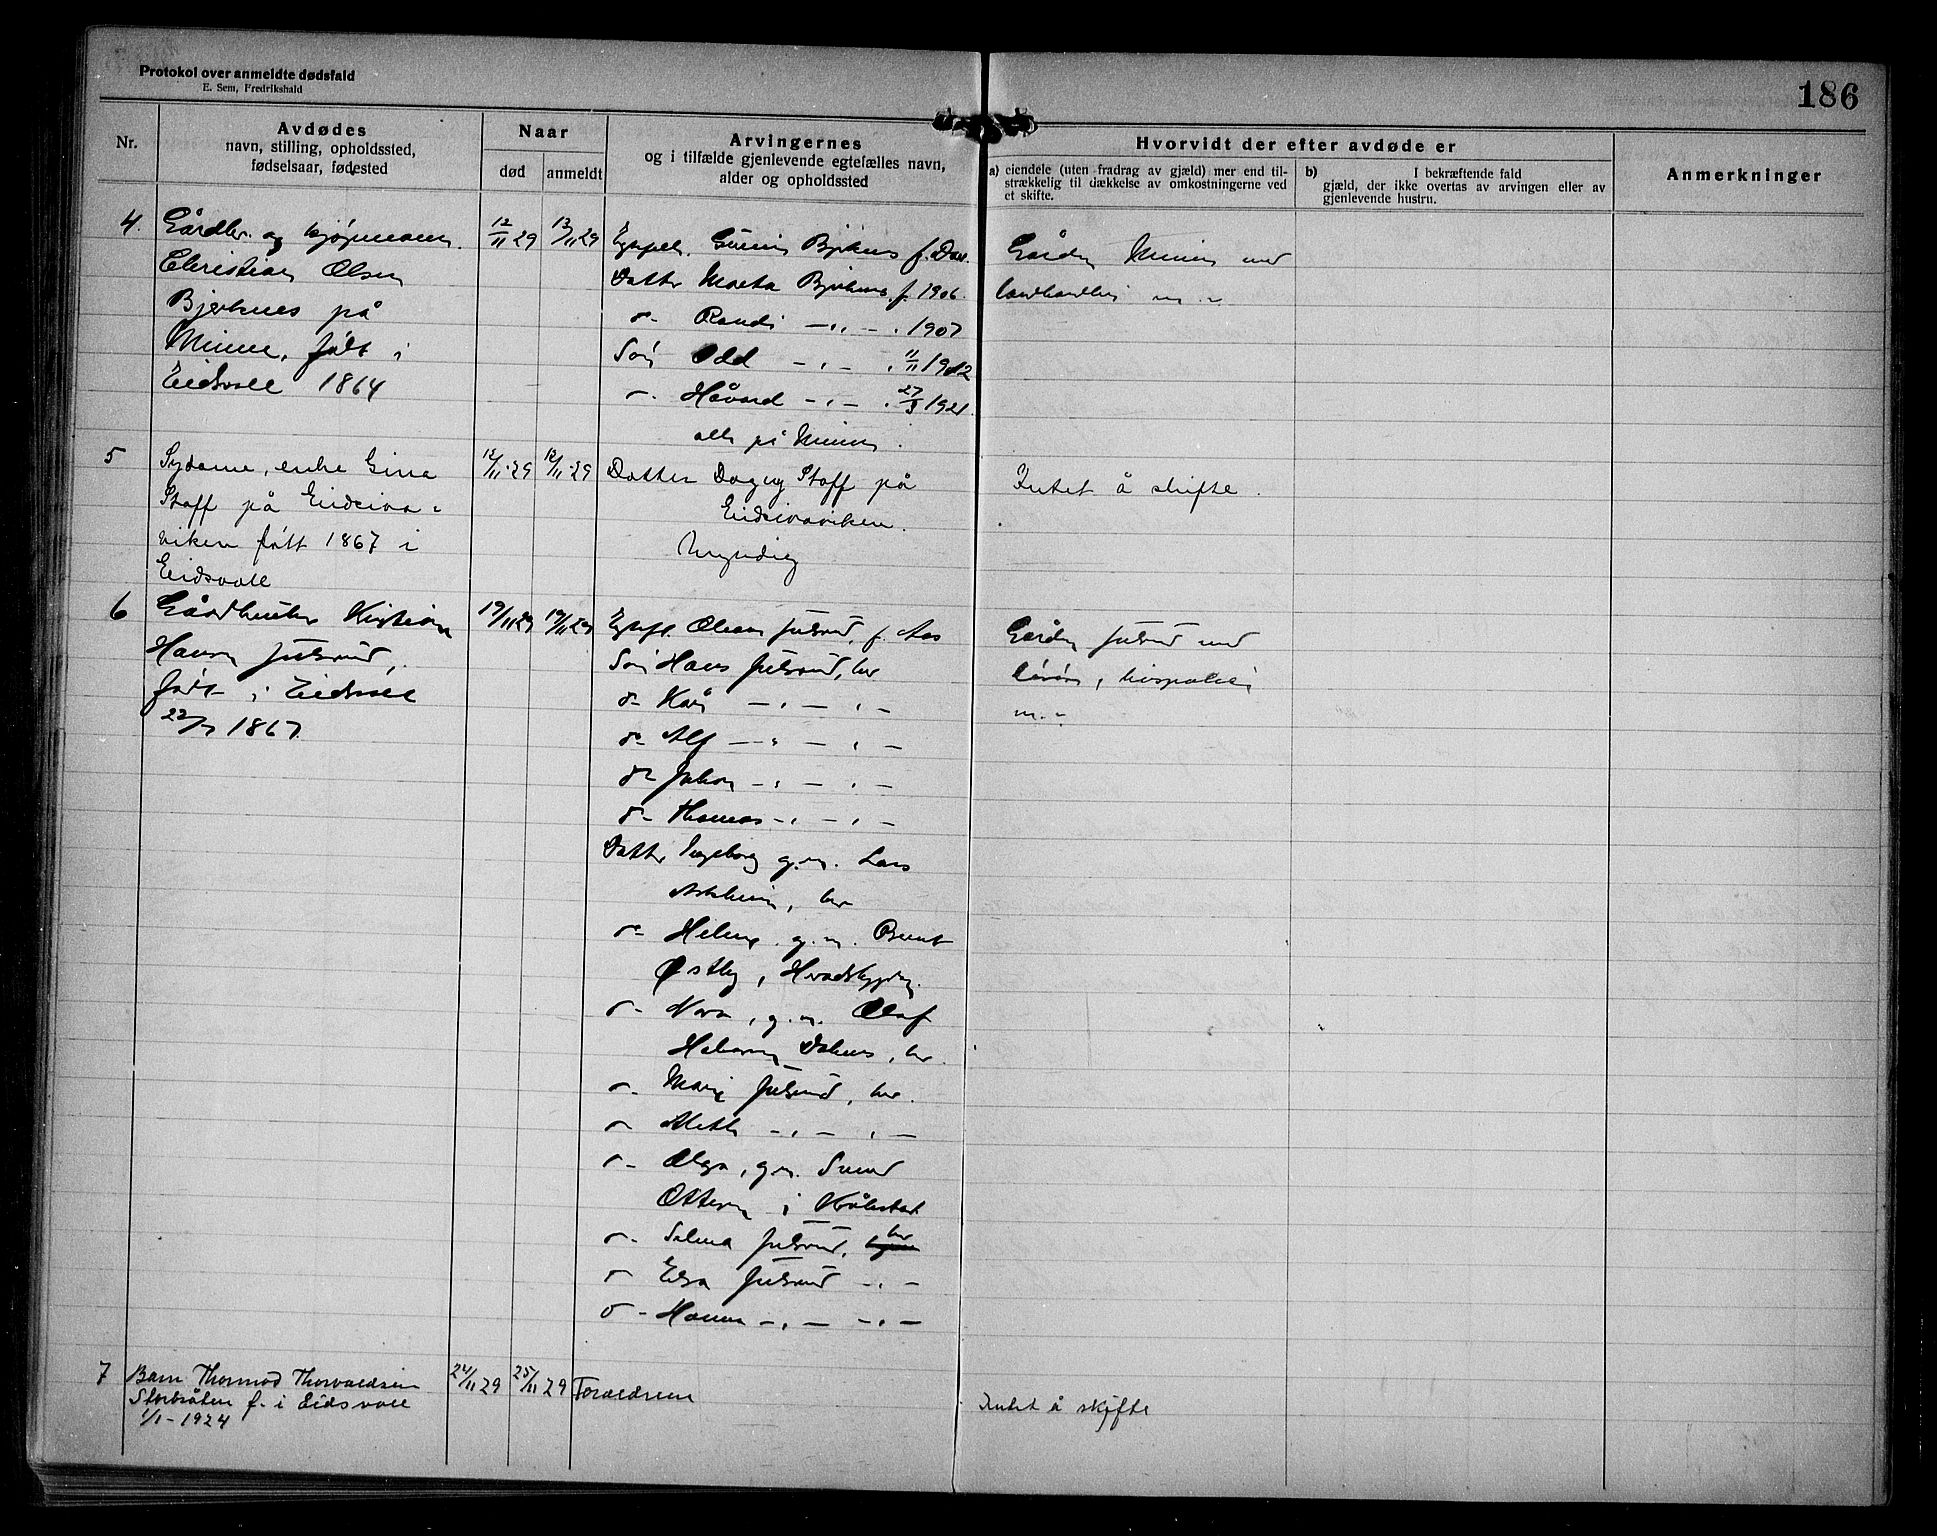 Protokol over anmeldte dødsfald
E. Sem, Fredrikshald
186
Nr.
Avdødes
navn, stilling, opholdssted,
fødselsaar, fødested
Naar
død
anmeldt
Arvingernes
og i tilfælde gjenlevende egtefælles navn,
alder og opholdssted
Hvorvidt der efter avdøde er
a) eiendele (uten fradrag av gjæld) mer end til-
strækkelig til dækkelse av omkostningerne ved
et skifte.
b) I bekræftende fald
gjæld, der ikke overtas av arvingen eller av
gjenlevende hustru.
Anmerkninger
4.
Gårdbr. og kjøpmann
Christian Olsen
Bjerknes på
Minne, født i
Eidsvoll 1864
12/11 29
13/11 29
Gunni Bjerknes f.
Datter Marta Bjerknes f. 1906.
d- Randi -„- . 1907
Søn Odd -„- . 11/11 1912
d- Håvard -„- . 1921.
alle på Minne.
Gården Minne med
landhandleri m. -
5
Sydame, enke Gina
Staff på Eidsiva-
viken født 1867 i
Eidsvoll
12/11-29
12/11-29
Datter Dagny Staff på
Eidsivaviken.
Myndig
Intet å skifte.
6
Gårdbruker Kristian
Hansen Julsrud,
født i Eidsvoll
22/7 1867.
19/11 29
19/11 29
Julsrud, f. Aas
Søn Hans Julsrud, her
d- Kåre -„- „-
d- Alf -„- „-
d- Johan -„- „-
d- Thomas -„- „-
Datter Ingeborg g.m. Lars
her
d- Helene g.m. Bernt
Østby,
d- Nora, g.m. Olaf
her.
d- Marie Julsrud, her.
d- Alette -„- „-
d- Olga, g.m.
Ottesen i Kråkstad
d- Selma Julsrud, her
d- Elsa Julsrud -„-
d- Hanna -„- -„-
Gården Julsrud med
løsøre,
m. -
7
Barn Thormod Thorvaldsen
Storbråten f. i Eidsvoll
1/1-1924
24/11 29
25/11 29
Foreldrene
Intet å skifte